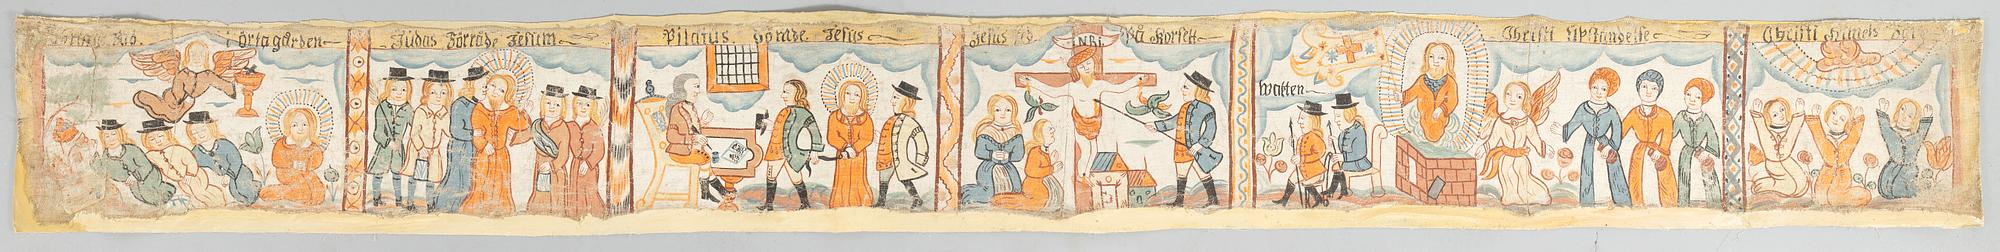 i örtagården
Judas Förråde Jesum
Pilatus Dömde Jesus
Jesus
INRI
På Korsett
Wakten
Christi Upståndelse
Christi Himels